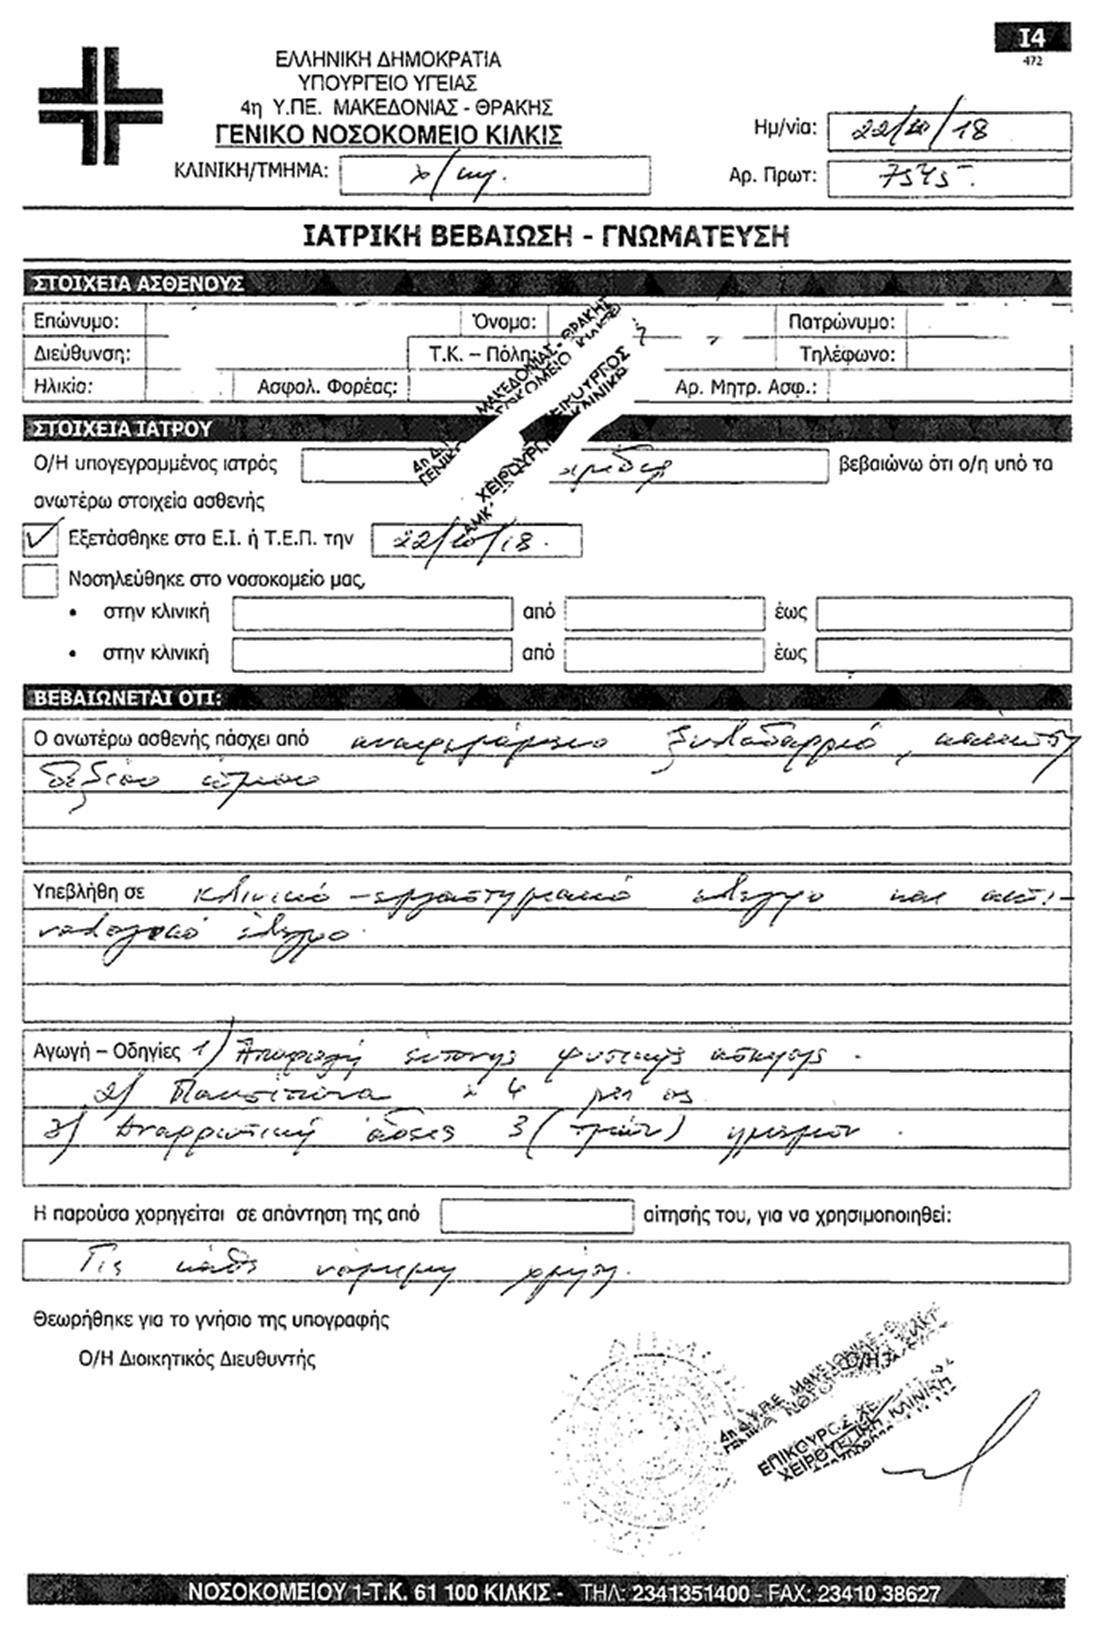 I4
472
ΕΛΛΗΝΙΚΗ ΔΗΜΟΚΡΑΤΙΑ
ΥΠΟΥΡΓΕΙΟ ΥΓΕΙΑΣ
4η Υ.ΠΕ. ΜΑΚΕΔΟΝΙΑΣ - ΘΡΑΚΗΣ
ΓΕΝΙΚΟ ΝΟΣΟΚΟΜΕΙΟ ΚΙΛΚΙΣ
Ημ/νία: 22/10/18
ΚΛΙΝΙΚΗ/ΤΜΗΜΑ:
Αρ. Πρωτ: 7545.
ΙΑΤΡΙΚΗ ΒΕΒΑΙΩΣΗ - ΓΝΩΜΑΤΕΥΣΗ
ΣΤΟΙΧΕΙΑ ΑΣΘΕΝΟΥΣ
Επώνυμο: Όνομα: Πατρώνυμο:
Διεύθυνση: Τ.Κ. – Πόλη: Τηλέφωνο:
Ηλικία: Ασφαλ. Φορέας: Αρ. Μητρ. Ασφ.:
ΣΤΟΙΧΕΙΑ ΙΑΤΡΟΥ
Ο/Η υπογεγραμμένος ιατρός βεβαιώνω ότι ο/η υπό τα
ανωτέρω στοιχεία ασθενής
Εξετάσθηκε στα Ε.Ι. ή Τ.Ε.Π. την 22/10/18.
Νοσηλεύθηκε στο νοσοκομείο μας,
• στην κλινική από έως
• στην κλινική από έως
ΒΕΒΑΙΩΝΕΤΑΙ ΟΤΙ:
Ο ανωτέρω ασθενής πάσχει από αναφερόμενο ξυλοδαρμό, κάκωση
δεξιού ώμου
Υπεβλήθη σε κλινικό – εργαστηριακό έλεγχο και ακτι-
νολογικό έλεγχο.
Αγωγή – Οδηγίες 1) Αποφυγή έντονης φυσικής άσκησης.
2) Παυσίπονα
3) Αναρρωτική άδεια 3 (τριών) ημερών.
Η παρούσα χορηγείται σε απάντηση της από αίτησής του, για να χρησιμοποιηθεί:
Για κάθε νόμιμη χρήση.
Θεωρήθηκε για το γνήσιο της υπογραφής
Ο/Η Διοικητικός Διευθυντής
ΕΠΙΚΟΥΡΟΣ
ΧΕΙΡΟΥΡΓΙΚΗ ΚΛΙΝΙΚΗ
ΝΟΣΟΚΟΜΕΙΟΥ 1-Τ.Κ. 61 100 ΚΙΛΚΙΣ - ΤΗΛ: 2341351400 - FAX: 23410 38627